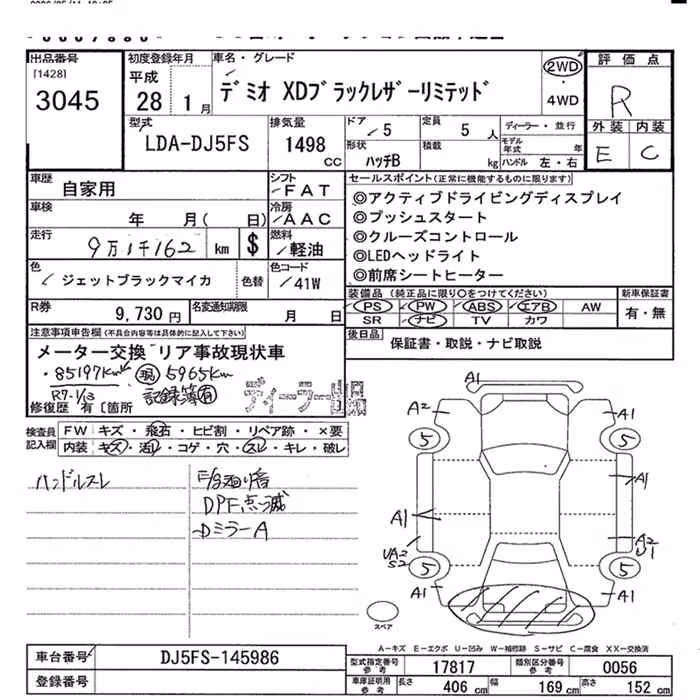 出品番号
[1428]
3045
初度登録年月
平成
28 1月
車名・グレード
デミオ XDブラックレザーリミテッド
2WD
・
4WD
評価点
R
外装 内装
E C
型式
LDA-DJ5FS
排気量
1498
CC
ドア 5
定員 5人
ディーラー・並行
形状
ハッチB
積載 kg
モデル年式 年
ハンドル 左・右
車歴
自家用
シフト
FAT
車検
年 月( 日)
冷房
AAC
走行
9万1千162 km
$
燃料
軽油
色
ジェットブラックマイカ
色替
色コード
41W
R券
9,730円
名変通知期限
月 日
セールスポイント(正常に機能するものに限ります)
◎アクティブドライビングディスプレイ
◎プッシュスタート
◎クルーズコントロール
◎LEDヘッドライト
◎前席シートヒーター
装備品 (純正品に限り○をつけてください)
PS PW ABS エアB AW
SR ナビ TV カワ
新車保証書
有・無
後日品
保証書・取説・ナビ取説
注意事項申告欄(不具合内容等は具体的に記入して下さい)
メーター交換 リア事故現状車
・85197km 現 5965km
R7.1/13 記録簿有
修復歴 有 [箇所
ディーラー出品
検査員
記入欄
FW キズ・飛石・ヒビ割・リペア跡・×要
内装 キズ・汚レ・コゲ・穴・スレ・キレ・破レ
ハンドルスレ
DPF点滅
DミラーA
A1
A2 A1
5 5
A1
A1
UA2
S2
A2
U1
5 5
A1 A1
スペア
A-キズ E-エクボ U-凹み W-補修跡 S-サビ C-腐食 XX-交換済
車台番号
DJ5FS-145986
登録番号
型式指定番号
参考
17817
類別区分番号
参考
0056
車庫証明用
参考
長さ 406 cm 幅 169 cm 高さ 152 cm